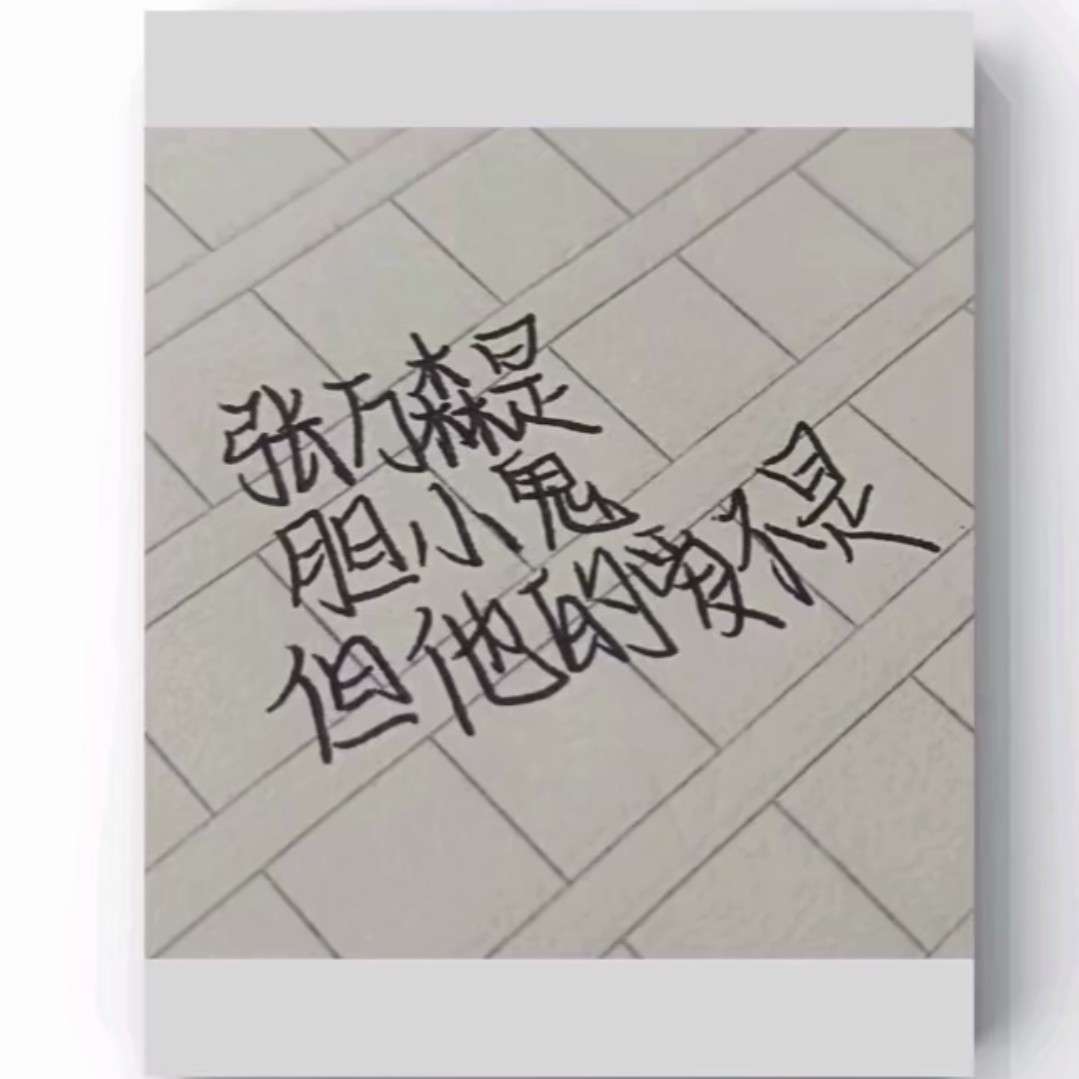 张万森是
胆小鬼
但他的爱不是